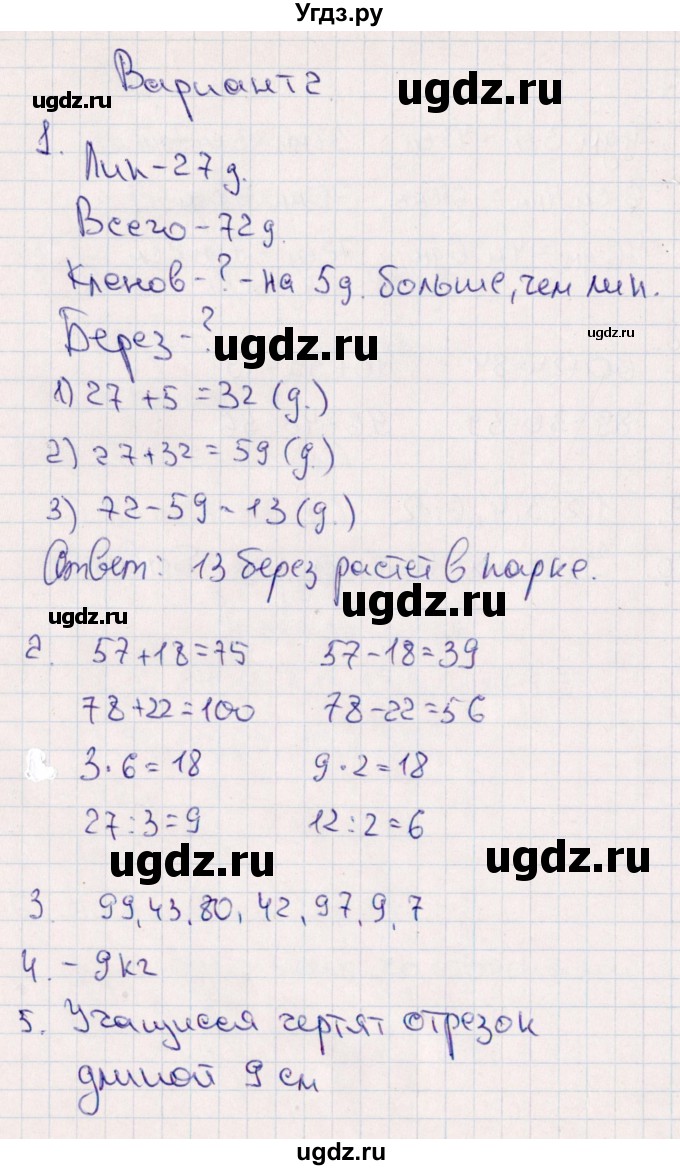 Угдз.ру
Вариант 2
ugdz.ru
ugdz.ru
1.
Лип - 27 д.
Всего - 72 д.
Кленов - ? - на 5 д. больше, чем лип.
ugdz.ru
Берез - ?
ugdz.ru
1) 27 + 5 = 32 (д.)
2) 27 + 32 = 59 (д.)
3) 72 - 59 = 13 (д.)
Ответ: 13 берез растет в парке.
ugdz.ru
ugdz.ru
2. 57 + 18 = 75 57 - 18 = 39
78 + 22 = 100 78 - 22 = 56
3 · 6 = 18 9 · 2 = 18
27 : 3 = 9 12 : 2 = 6
ugdz.ru
ugdz.ru
3. 99, 43, 80, 42, 97, 9, 7
4. - 9 кг
5. Учащиеся чертят отрезок
длиной 9 см
ugdz.ru